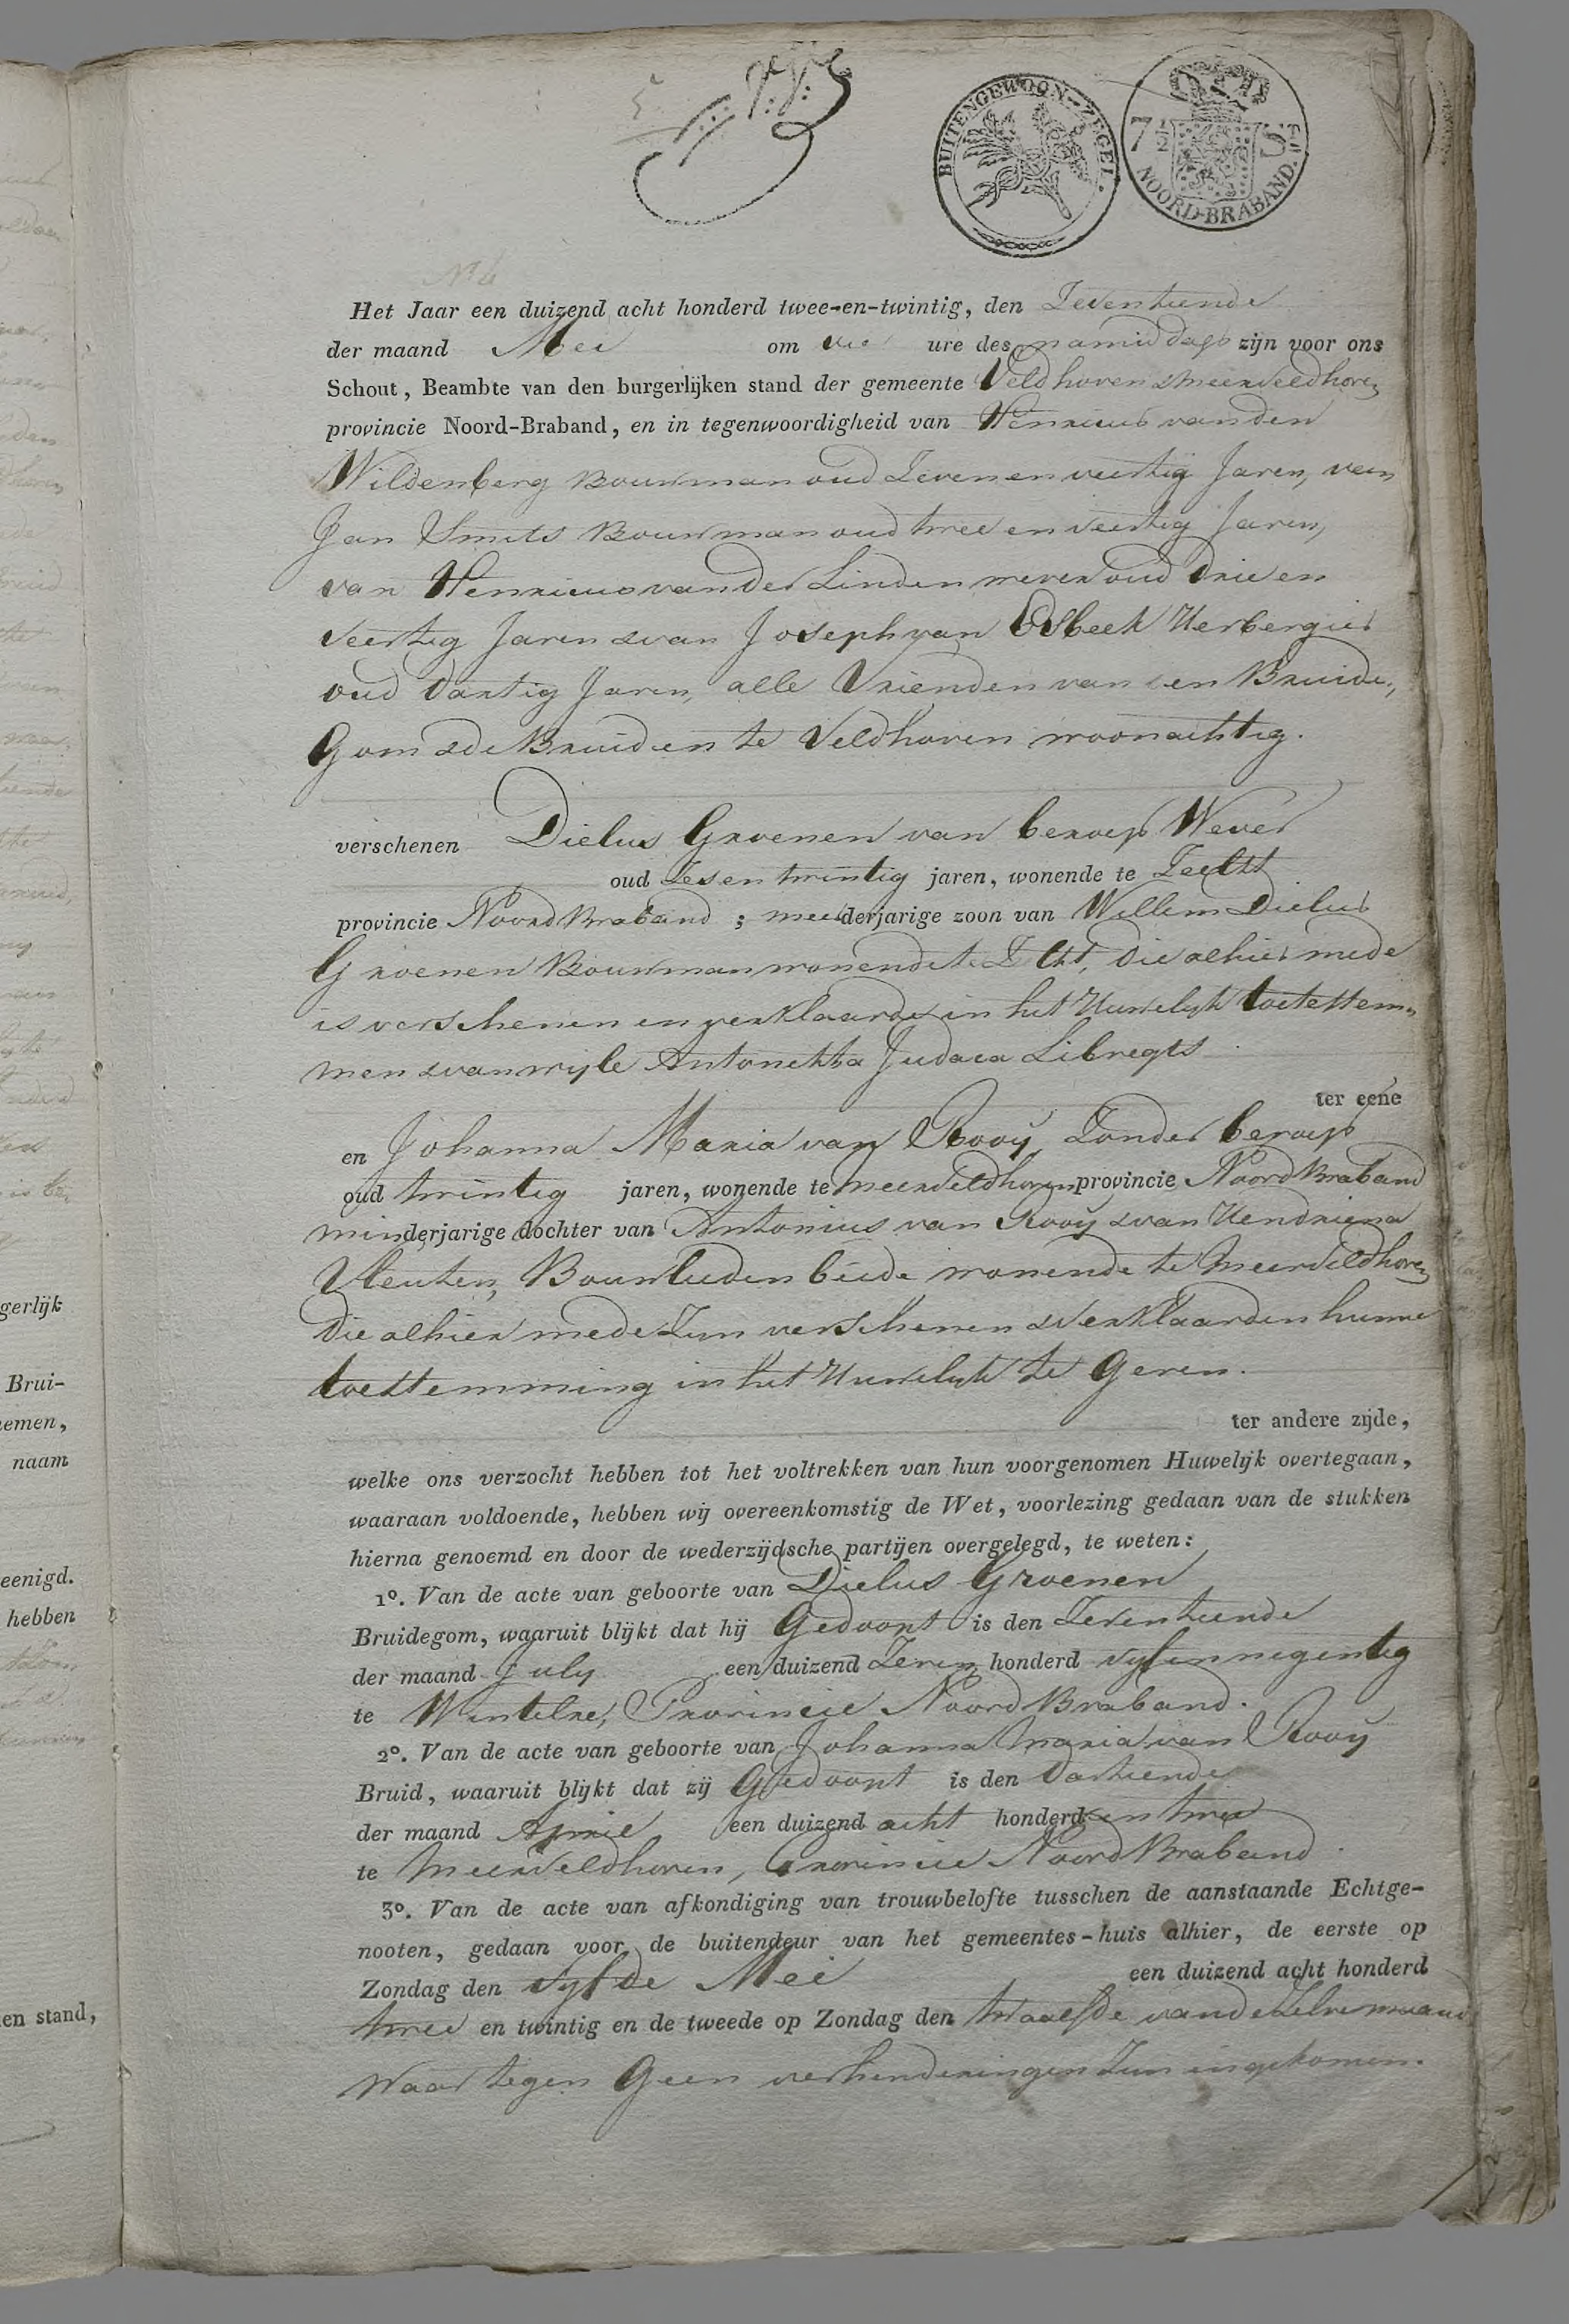 BUITENGEWOON-ZEGEL.
7½ St.
NOORD-BRABAND.
N° 4
Het Jaar een duizend acht honderd twee-en-twintig, den Zeventiende
der maand Mei om vier ure des namiddags zijn voor ons
Schout, Beambte van den burgerlijken stand der gemeente Veldhoven & Meerveldhoven
provincie Noord-Braband, en in tegenwoordigheid van Henricus van den
Wildenberg Bouwman oud Zeven en veertig Jaren, van
Jan Smits Bouwman oud twee en veertig Jaren,
van Henricus van der Linden wever oud drie en
veertig Jaren & van Joseph van Herbergier
oud dartig Jaren, alle Vrienden van den Bruide-
Gom & de Bruid en te Veldhoven woonachtig.
verschenen Dielus Groenen van beroep Wever
oud Zes en twintig jaren, wonende te Zeelst
provincie Noord Braband ; meerderjarige zoon van Willem Dielus
Groenen Bouwman wonende te Zelst, die alhier mede
is verschenen en verklaarde in het Huwelyk toetestem-
men & van wyle Antonetta Judaca Libregts
ter eene
en Johanna Maria van Rooy Zonder beroep
oud twintig jaren, wonende te Meerveldhoven provincie Noord Braband
minderjarige dochter van Antonius van Rooy & van Hendriena
Vleuten, Bouwlieden beide wonende te Meerveldhoven
die alhier mede Zyn verschenen & verklaarden hunne
toestemming in het Huwelyk te Geven.
ter andere zijde,
welke ons verzocht hebben tot het voltrekken van hun voorgenomen Huwelijk overtegaan,
waaraan voldoende, hebben wij overeenkomstig de Wet, voorlezing gedaan van de stukken
hierna genoemd en door de wederzijdsche partijen overgelegd, te weten:
1°. Van de acte van geboorte van Dielus Groenen
Bruidegom, waaruit blijkt dat hij Gedoopt is den Zeventiende
der maand July een duizend Zeven honderd vyf en negentig
te Wintelre, Provincie Noord Braband.
2°. Van de acte van geboorte van Johanna Maria van Rooy
Bruid, waaruit blijkt dat zij Gedoopt is den dartiende
der maand April een duizend acht honderd en twee
te Meerveldhoven, Provincie Noord Braband.
3°. Van de acte van afkondiging van trouwbelofte tusschen de aanstaande Echtge-
nooten, gedaan voor de buitendeur van het gemeentes-huis alhier, de eerste op
Zondag den vyfde Mei een duizend acht honderd
twee en twintig en de tweede op Zondag den twaalfde van de Zelve maand
Waar tegen Geen verhinderingen Zyn ingekomen.
gerlijk
Brui-
nemen,
naam
eenigd.
hebben
en stand,